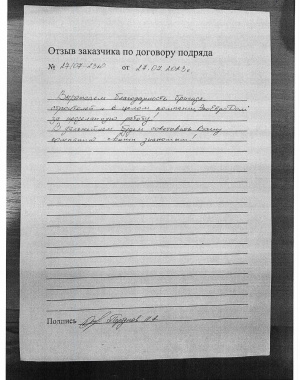 Отзыв заказчика по договору подряда
№ 27/07-230 от 27.07.2023г.
Выражаем благодарность бригаде
строителей и в целом компании
за проделанную работу!
В дальнейшем будем советовать Вашу
компанию своим знакомым!
Подпись